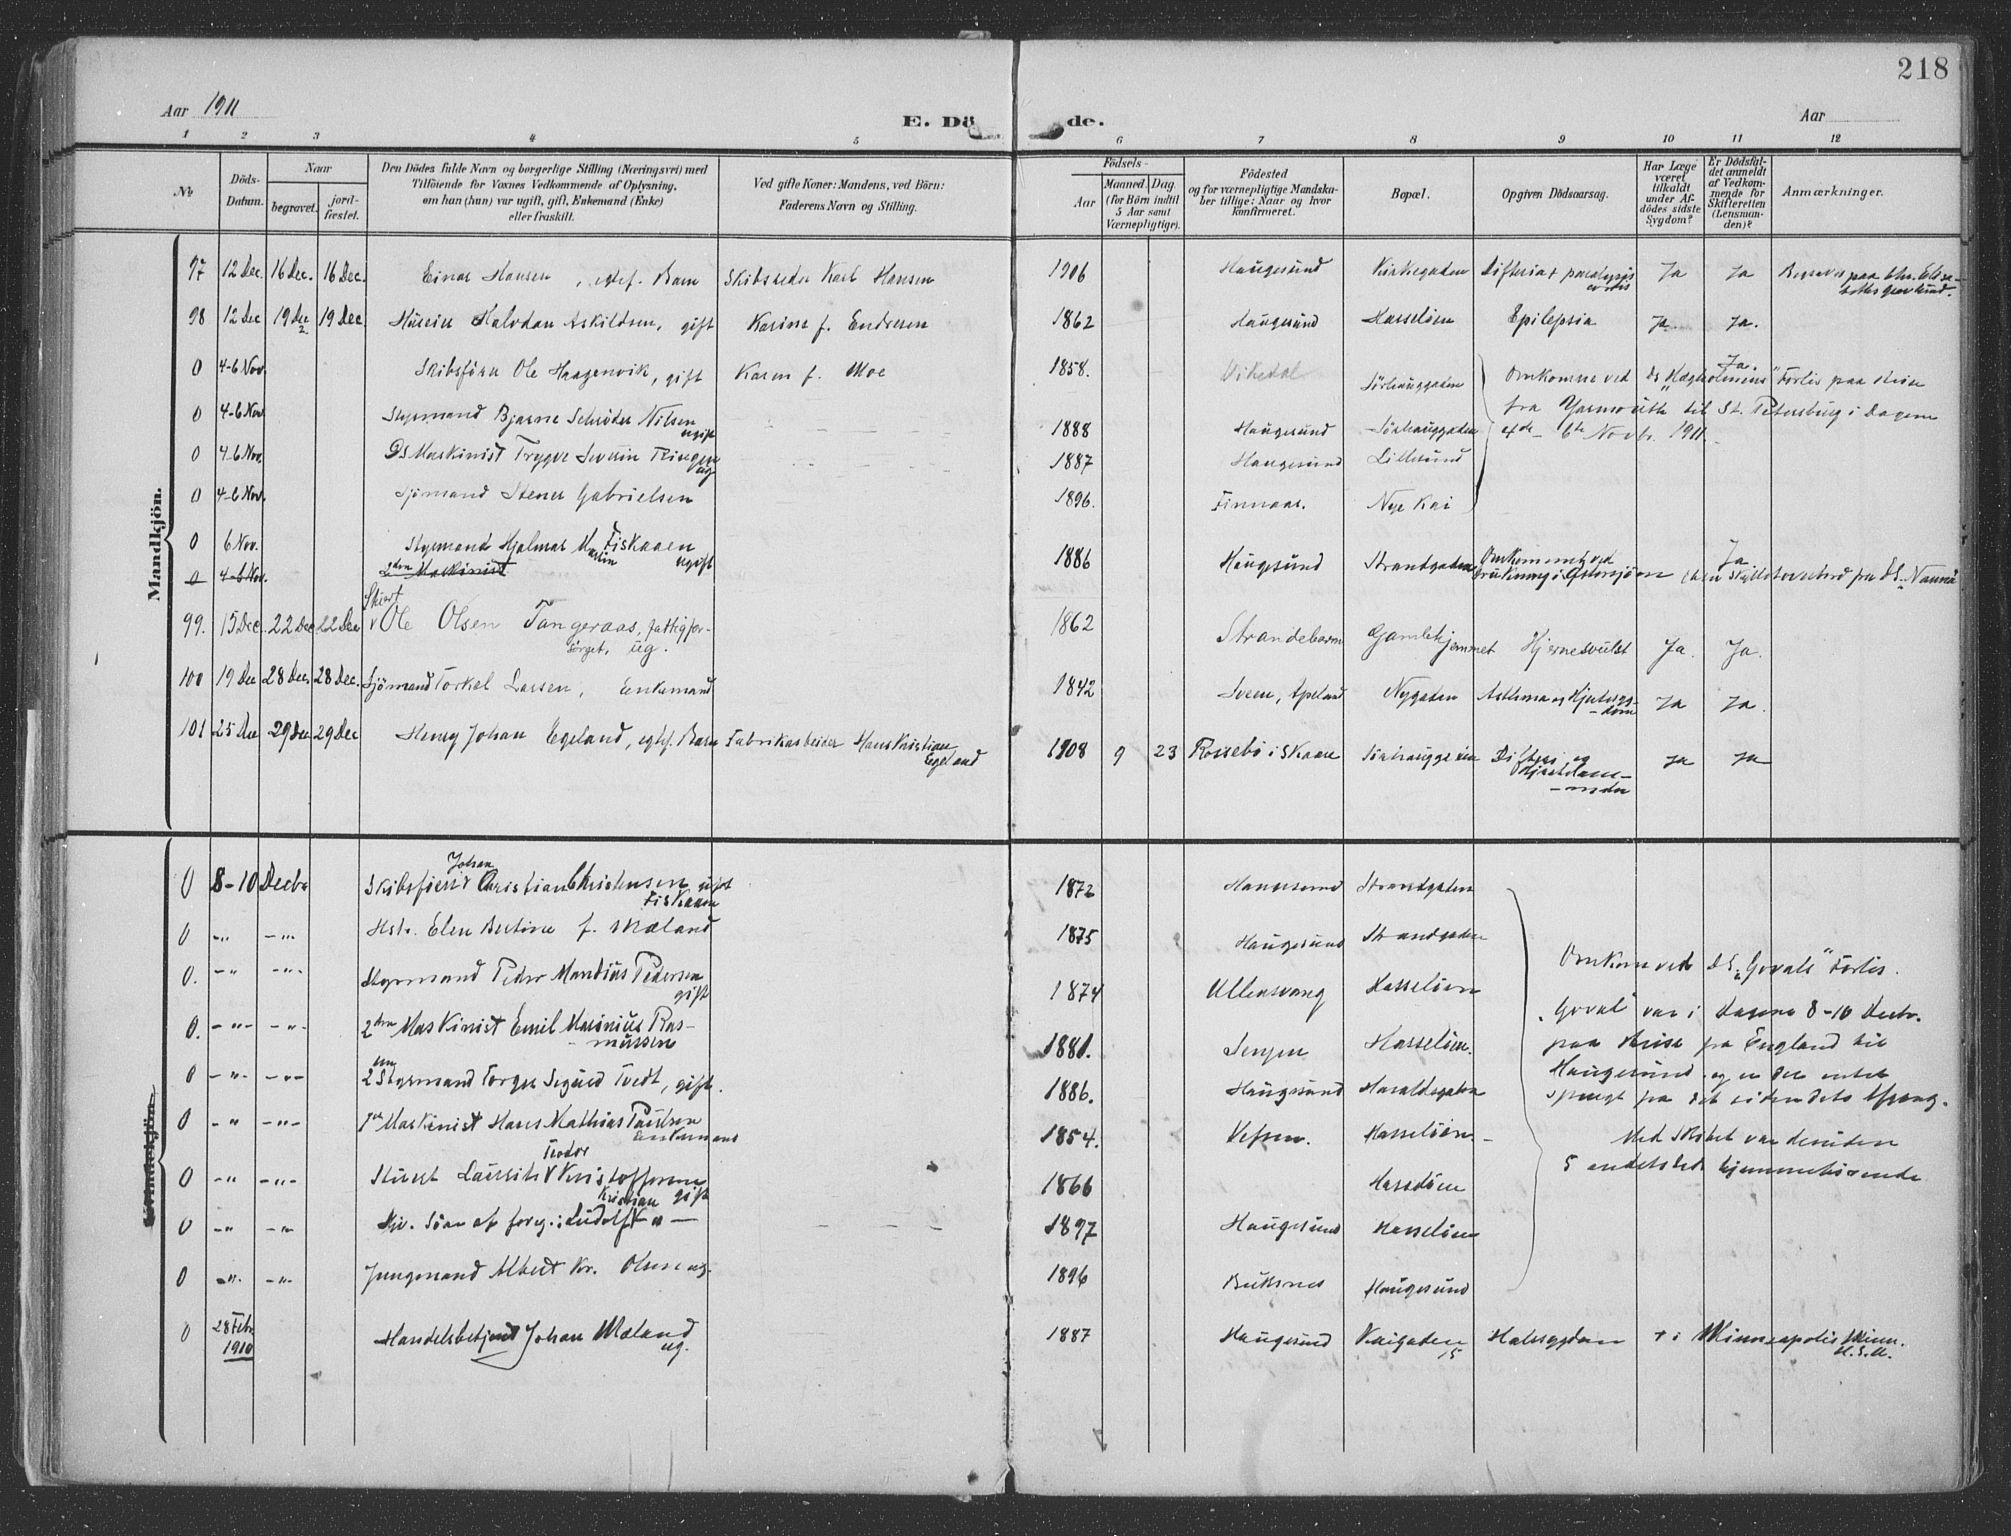 218
Aar 1911
E. Dö de.
Aar
1 2 3 4 5 6 7 8 9 10 11 12
No
Döds-Datum.
Naar
begravet.
jord-fæstet.
Den Dödes fulde Navn og borgerlige Stilling (Næringsvei) med
Tilföiende for Voxnes Vedkommende af Oplysning,
om han (hun) var ugift, gift, Enkemand (Enke)
eller fraskilt.
Ved gifte Koner: Mandens, ved Börn:
Faderens Navn og Stilling.
Födsels-
Aar
Maaned. Dag.
(for Börn indtil
5 Aar samt
Værnepligtige).
Födested
og for værnepligtige Mandsku-
ber tillige: Naar og hvor
konfirmeret.
Bopæl.
Opgiven Dödsaarsag.
Har Læge
været
tilkaldt
under Af-
dödes sidste
Sygdom?
Er Dödsfal-
det anmeldt
af Vedkom-
mende for
Skifteretten
(Lensman-
den)?
Anmærkninger.
Mandkjön.
97 12 Dec. 16 Dec. 16 Dec. Einar Hansen, egtef. Barn Skibsreder Karl Hansen 1906 Haugesund Kirkegaden Difteria + paralysis cordis Ja Ja Begravet paa
98 12 Dec 19 Dec 19 Dec. Halvdan Askildsen, gift Karine f. Endresen 1862 Haugesund Hasselöen Epilepsia Ja. Ja.
0 4-6 Nov. Skibsförer Ole Haagenvik, gift Karen f. Moe 1858. Vikedal Sörhauggaden Omkomne ved DS "Hægholmens" Forlis paa Reise Ja.
fra Yarmouth til St. Petersburg i Dagene
0 4-6 Nov. Styrmand Bjarne Schrøder Nilsen ugift 1888 Haugesund Sörhauggaden 4de - 6te Novbr. 1911.
0 4-6 Nov. Maskinist Trygve Severin ug 1887 Haugesund Lillesund
0 4-6 Nov. Sjömand Stener Gabrielsen 1896. Finnaas. Nye Kai
0 6 Nov. Styrmand Hjalmar Marin Fiskaaen ugift 1886 Haugesund Strandgaden Omkommet ved Drukning i Östersjöen Ja fra DS. "Nanna"
0 4-6 Nov. 2den Maskinist
99. 15 Dec. 22 Dec 22 Dec Ole Olsen Tangeraas, fattigfor-
sörget, ug. 1862 Strandebarm Gamlehjemmet Hjernesvulst Ja. Ja.
100 19 Dec 28 Dec. 28 Dec. Sjömand Torkel Larsen, Enkemand 1842 Sveen, Apeland Nygaden Asthma og Hjertesyg-
dom Ja Ja.
101 25 Dec 29 Dec 29 Dec Henry Johan Egeland, egtef. Barn Fabrikarbeider Hans Kristian
Egeland 1908 9 23 Rossebö i Skaare Sörhauggaden Difteri og Ja Ja
Kvindekjön.
0 8-10 Decbr Skibsförer Johan Christian Christensen gift
Fiskaaen 1872 Haugesund Strandgaden
0 -"- -"- Hstr. Elen Bertine f. Mæland 1875 Haugesund Strandgaden Omkom ved DS. "Govals" Forlis.
0. -"- -"- Styrmand Peder Mandius Pedersen
gift 1874 Ullensvang Hasselöen "Goval" var i Dagene 8-10 Decbr.
0. -"- -"- 2den Maskinist Emil Marinius Ras-
mussen 1881. Hasselöen. paa Reise fra England til
0 -"- -"- 2den Styrmand Torger Sigurd Tvedt, gift. 1886. Haugesund Haraldsgaden Haugesund og er det intet
spurgt fra det siden dets Afgang.
0 -"- -"- 1ste Maskinist Hans Mathias Paulsen
Enkemand 1854. Vefsen. Hasselöen Med Skibet var desuden
0 -"- -"- Stuert Lauritz Teodor Kristoffersen
gift 1866 Hasselöen 5 andetsteds hjemmehörende
0 -"- -"- Div. Sön af foreg.: Ludolf Kristian K -"- 1897 Haugesund Hasselöen
0 -"- -"- Jungmand Albert Kr. Olsen ug. 1896 Buksnes Haugesund
0 28 Febr.
1910 Handelsbetjent Johan Mæland
ug. 1887 Haugesund Kaigaden
15 Halssygdom + i Minneapolis Minn.
U.S.A.